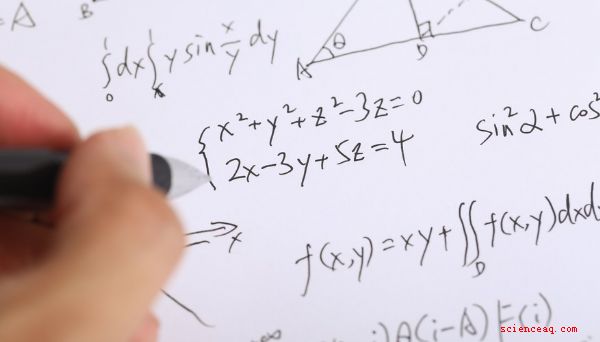 = A
B
∫₀¹ dx ∫ₓ¹ y sin x/y dy
A θ D C
{ x² + y² + z² - 3z = 0
2x - 3y + 5z = 4
sin²2 + cos²
x
f(x,y) = xy + ∬_D f(x,y) dxd
A(i-A) E(i)
scienceaq.com